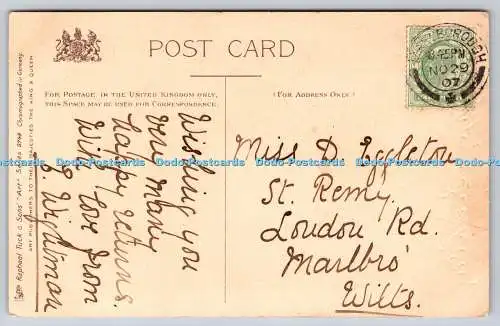 POST CARD
FOR POSTAGE IN THE UNITED KINGDOM ONLY,
THIS SPACE MAY BE USED FOR CORRESPONDENCE.
(FOR ADDRESS ONLY.)
BOROUGH
PM
NO 29
07
Raphael Tuck & Sons' "Art" Series Chromographed in Germany.
ART PUBLISHERS TO THEIR MAJESTIES THE KING & QUEEN
Wishing you
very many
happy returns.
With love from
Wightman
Miss D. Eggleton
St. Remy.
London Rd.
Marlbro'
Wilts.
Dodo-Postcards Dodo-Postcards Dodo-Postcards Dodo-Postcards